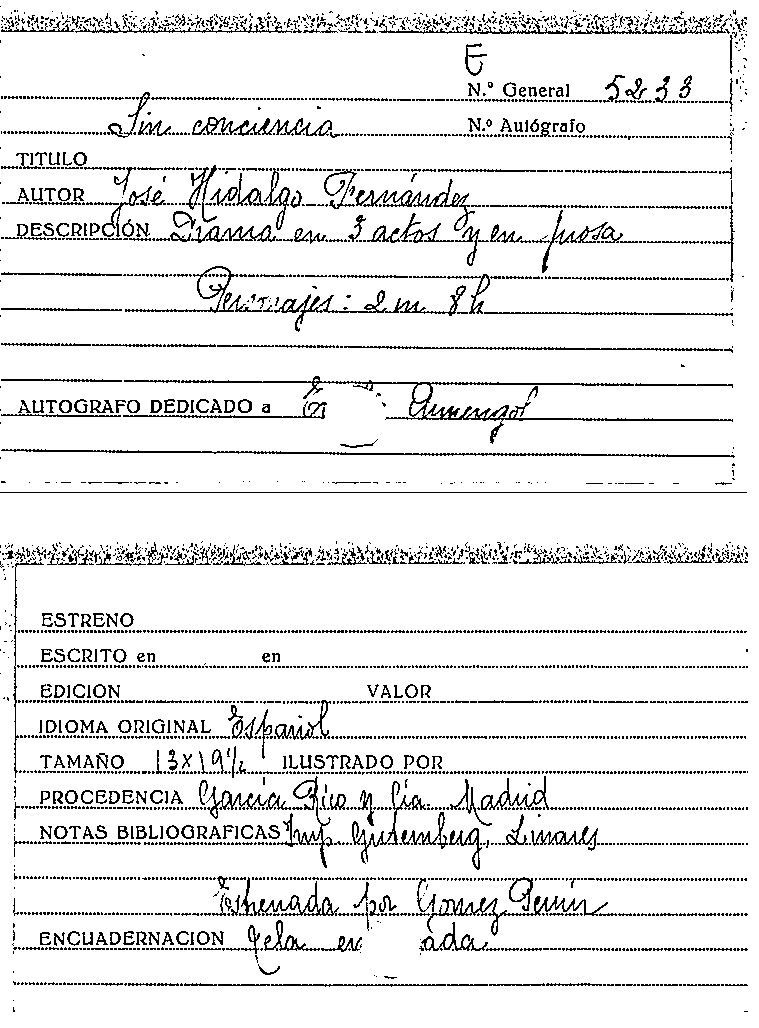 E
N.º General 5233
Sin conciencia N.º Autógrafo
TITULO
AUTOR José Hidalgo Fernández
DESCRIPCIÓN Drama en 3 actos y en prosa
Personajes: 2 m 8 h
AUTOGRAFO DEDICADO a Armengol
ESTRENO
ESCRITO en en
EDICION VALOR
IDIOMA ORIGINAL Español
TAMAÑO 13x19½ ILUSTRADO POR
PROCEDENCIA García Rico y Cía. Madrid
NOTAS BIBLIOGRAFICAS Imp Gutemberg, Linares
Estrenada por Gomez
ENCUADERNACION Tela